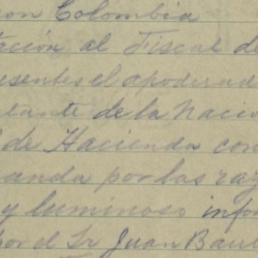 con Colombia
tación al Fiscal de
esentes el apoderad
tante de la Nació
de Hacienda con
anda por las raz
y luminoso infor
por el Sr Juan Baut